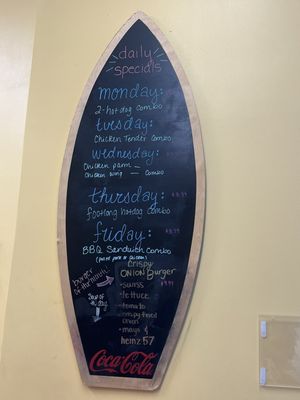 daily
specials
monday:
2-hotdog combo
tuesday:
Chicken Tender Combo
wednesday:
Chicken parm —
Chicken wing — Combo
thursday:
footlong hotdog combo
friday:
BBQ Sandwich Combo
(pulled pork or chicken)
burger
of the month!
Crispy
ONION Burger
- swiss
- lettuce
- tomato
- crispy fried
onion
- mayo &
heinz 57
Soup of
the day
Coca-Cola